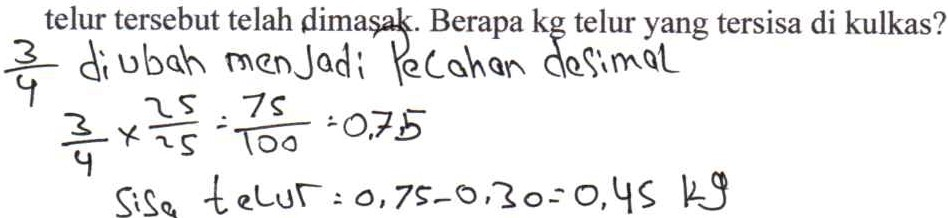 telur tersebut telah dimasak. Berapa kg telur yang tersisa di kulkas?
3/4 diubah menJadi Pecahan desimal
3/4 × 25/25 = 75/100 = 0,75
Sisa telur = 0,75-0,30=0,45 kg